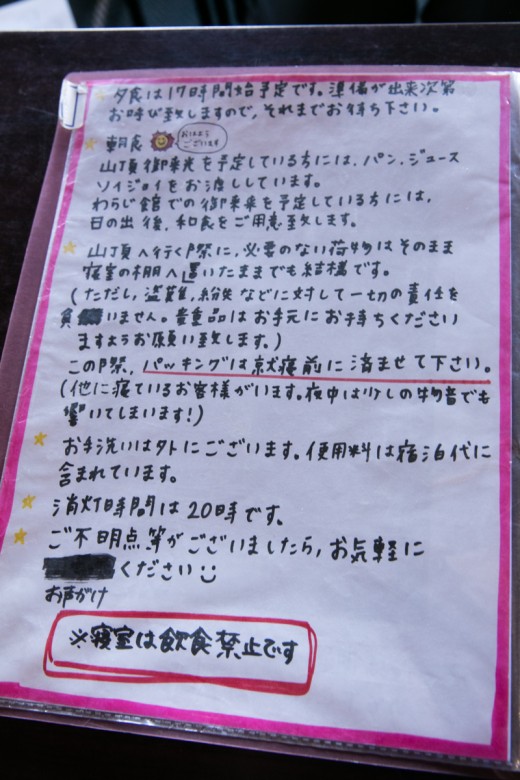 夕食は17時開始予定です。準備が出来次第
お呼び致しますので、それまでお待ち下さい。
朝食 おはよう
ございます
山頂御来光を予定している方には、パン、ジュース
ソイジョイをお渡ししています。
わらじ館での御来光を予定している方には、
日の出後、和食をご用意致します。
山頂へ行く際に、必要のない荷物はそのまま
寝室の棚へ置いたままでも結構です。
(ただし、盗難、紛失などに対して一切の責任を
負いません。貴重品はお手元にお持ちください
ますようお願い致します。)
この際、パッキングは就寝前に済ませて下さい。
(他に寝ているお客様がいます。夜中は少しの物音でも
響いてしまいます!)
お手洗いは外にございます。使用料は宿泊代に
含まれています。
消灯時間は20時です。
ご不明点等がございましたら、お気軽に
ください
お声がけ
※寝室は飲食禁止です